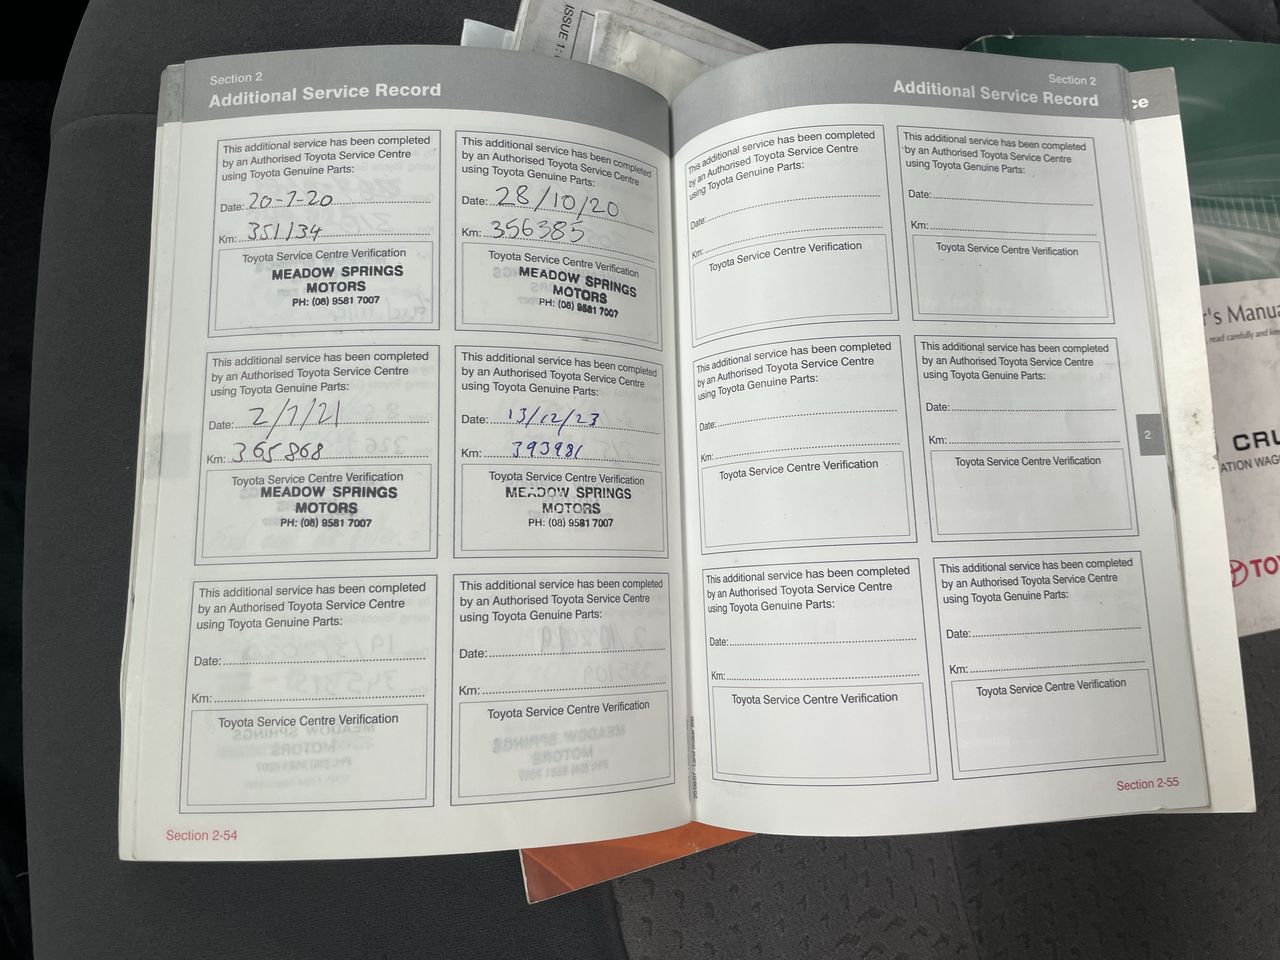 ISSUE 1:
Section 2
Additional Service Record
This additional service has been completed
by an Authorised Toyota Service Centre
using Toyota Genuine Parts:
Date: 20-7-20
Km: 351134
Toyota Service Centre Verification
MEADOW SPRINGS
MOTORS
PH: (08) 9581 7007
This additional service has been completed
by an Authorised Toyota Service Centre
using Toyota Genuine Parts:
Date: 28/10/20
Km: 356385
Toyota Service Centre Verification
MEADOW SPRINGS
MOTORS
PH: (08) 9581 7007
This additional service has been completed
by an Authorised Toyota Service Centre
using Toyota Genuine Parts:
Date: 2/7/21
Km: 365868
Toyota Service Centre Verification
MEADOW SPRINGS
MOTORS
PH: (08) 9581 7007
This additional service has been completed
by an Authorised Toyota Service Centre
using Toyota Genuine Parts:
Date: 13/12/23
Km: 393981
Toyota Service Centre Verification
MEADOW SPRINGS
MOTORS
PH: (08) 9581 7007
This additional service has been completed
by an Authorised Toyota Service Centre
using Toyota Genuine Parts:
Date:
Km:
Toyota Service Centre Verification
This additional service has been completed
by an Authorised Toyota Service Centre
using Toyota Genuine Parts:
Date:
Km:
Toyota Service Centre Verification
Section 2-54
Section 2
Additional Service Record
This additional service has been completed
by an Authorised Toyota Service Centre
using Toyota Genuine Parts:
Date:
Km:
Toyota Service Centre Verification
This additional service has been completed
by an Authorised Toyota Service Centre
using Toyota Genuine Parts:
Date:
Km:
Toyota Service Centre Verification
This additional service has been completed
by an Authorised Toyota Service Centre
using Toyota Genuine Parts:
Date:
Km:
Toyota Service Centre Verification
This additional service has been completed
by an Authorised Toyota Service Centre
using Toyota Genuine Parts:
Date:
Km:
Toyota Service Centre Verification
This additional service has been completed
by an Authorised Toyota Service Centre
using Toyota Genuine Parts:
Date:
Km:
Toyota Service Centre Verification
This additional service has been completed
by an Authorised Toyota Service Centre
using Toyota Genuine Parts:
Date:
Km:
Toyota Service Centre Verification
2
Section 2-55
ce
r's Manua
read carefully and
CRU
ATION WAG
TOY